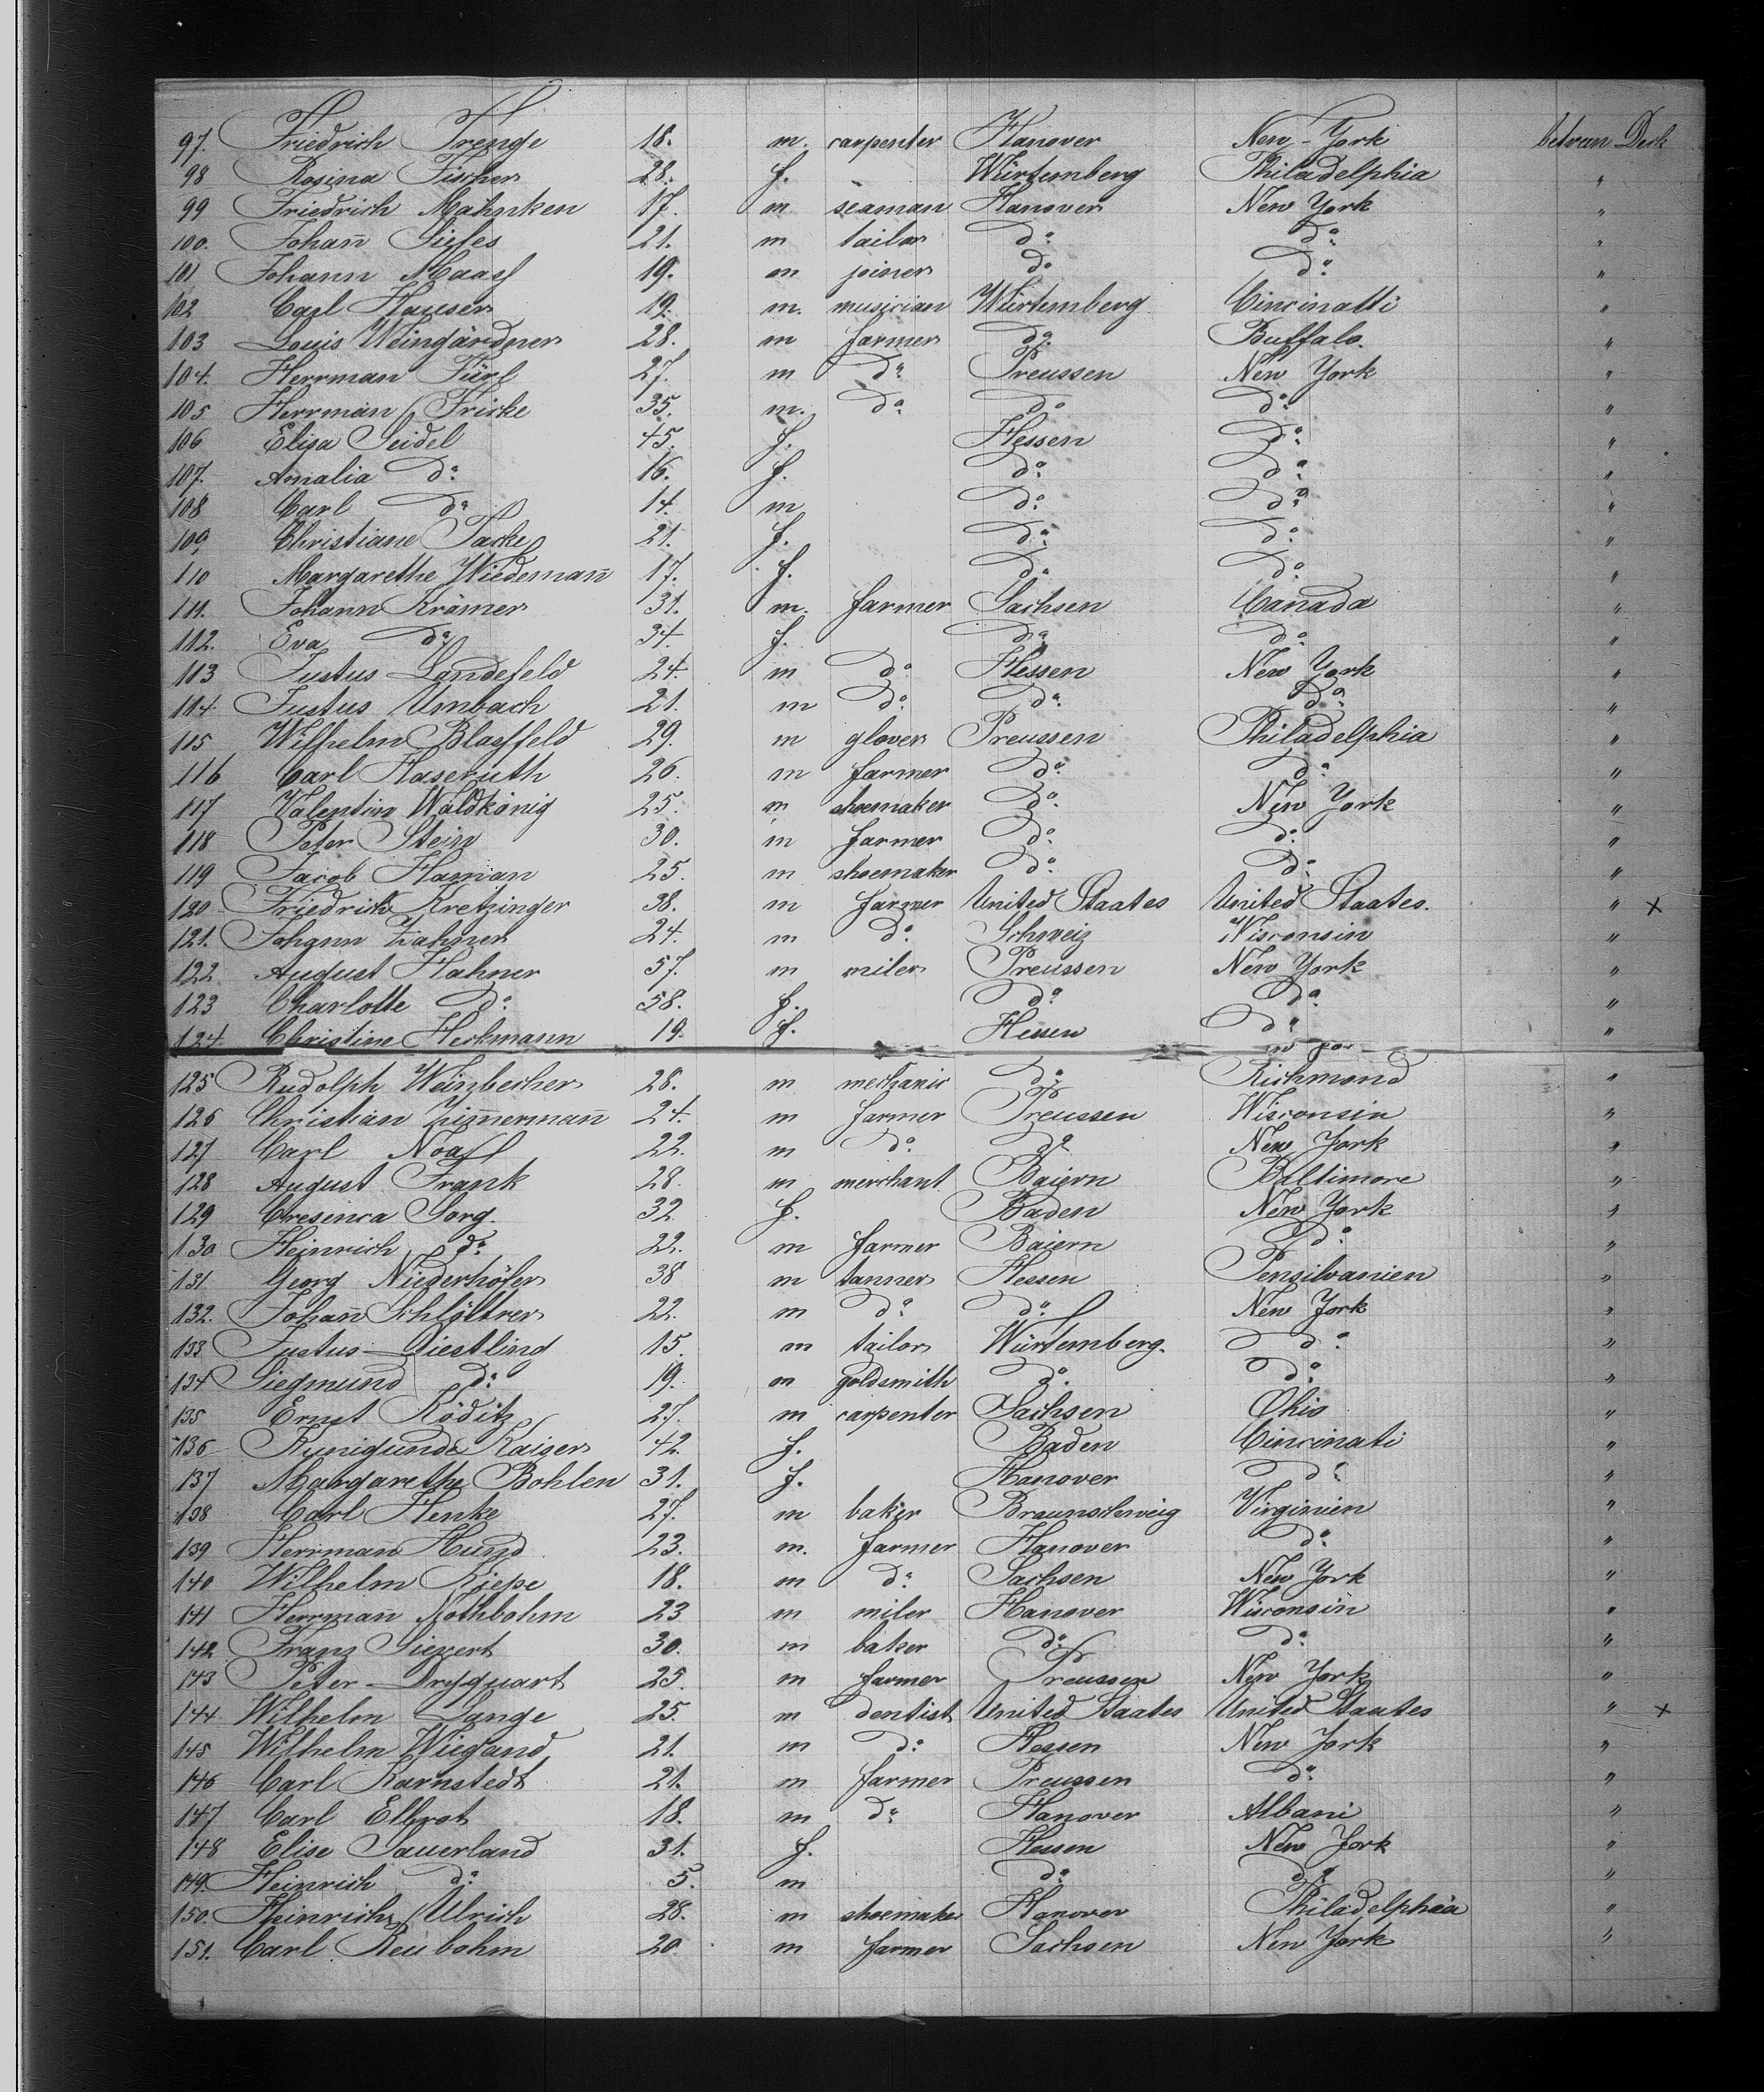 97. Friedrich Trenge 18. m. carpenter Hanover New-York betwen Deck
98 Rosina Fischer 28. f. Würtemberg Philadelphia "
99 Friedrich Mahnken 17. m seaman Hanover New York "
100. Johan̄ Siefes 21. m tailor do do "
101 Johann Maass 19. m joiner do do "
102 Carl Hauser 19. m. musician Würtemberg Cincinatti "
103 Louis Weingärdner 28. m farmer do Buffalo. "
104. Herrman Türl 27. m do Preussen New York "
105 Herrman Fricke 35. m. do do do "
106 Elisa Seidel 45. f. Hessen do "
107. Amalia do 16. f. do do "
108 Carl do 14. m do do "
109 Christiane Tacke 21. f. do do "
110 Margarethe Wiedeman̄ 17. f. do do "
111. Johann Krämer 31. m. farmer Sachsen Canada "
112. Eva do 34. f. do do "
113 Justus Landefeld 24. m do Hessen New York "
114 Justus Umbach 21. m do do do "
115 Wilhelm Blassfeld 29. m glover Preussen Philadelphia "
116 Carl Haseruth 26. m farmer do do "
117 Valentin Waldkönig 25. m shoemaker do New York "
118 Peter Stein 30. m farmer do do "
119 Jacob Haman 25. m shoemaker do do "
120 Friedrich Kretzinger 38. m farmer United Staates United Staates. " x
121. Johann Zahner 24. m do Schweiz Wisconsin "
122 August Hahner 57. m miler Preussen New York "
123 Charlotte do 58. f. do do "
124. Christine Heckmann 19. f. Hessen do "
125 Rudolph Weinbecher 28. m mechanic do Richmond "
126 Christian Zim̄erman̄ 24. m farmer Preussen Wisconsin "
127 Carl Noass 22. m do do New York "
128 August Frank 28. m merchant Baiern Baltimore "
129 Cresenca Sorg. 32. f. Baden New York "
130 Heinrich do 22. m farmer Baiern do "
131 Georg Niederhöfer 38 m tanner Hessen Pensilvanien "
132. Johan̄ Schlöttrer 22. m do do New York "
133 Justus Giestling 15. m tailor Würtemberg. do "
134 Siegmund do 19. m goldsmith do do "
135 Ernst Röditz 27. m carpenter Sachsen Ohio "
136 Kunigunde Kaiser 42. f. Baden Cincinati "
137 Margarethe Bohlen 31. f. Hanover do "
138 Carl Henke 27. m baker Braunschweig Virginien "
139 Herrman Hund 23. m. farmer Hanover do "
140 Wilhelm Riepe 18. m do Sachsen New York "
141 Herrman Nothbohm 23 m miler Hanover Wisconsin "
142 Franz Sievert 30. m baker do do "
143 Peter Dryquart 25. m farmer Preussen New York "
144 Wilhelm Lange 25. m dentist United Staates United Staates " x
145 Wilhelm Wiegand 21. m do Hessen New York "
146 Carl Karnstedt 21. m farmer Preussen do "
147 Carl Elbrot 18. m do Hanover Albani "
148 Elise Sauerland 31. f. Hessen New York "
149. Heinrich do 5. m do do "
150. Heinrich Ulrich 28. m shoemaker Hanover Philadelphia "
151. Carl Reubohm 20 m farmer Sachsen New York "